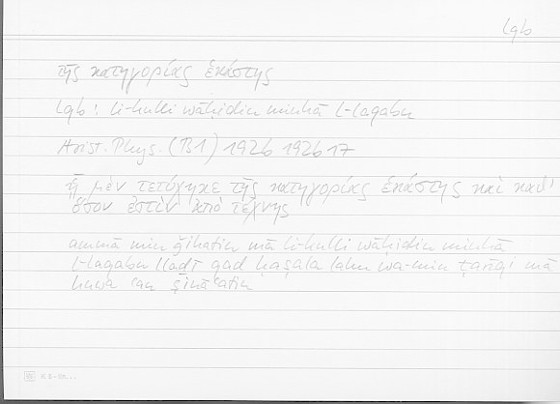 lqb
τῆς κατηγορίας ἑκάστης
lqb : li-kulli wāḥidin minhā l-laqabu
Arist. Phys. (B1) 192b 192b17
ᾗ μὲν τετύχηκε τῆς κατηγορίας ἑκάστης καὶ καθ'
ὅσον ἐστὶν ἀπὸ τέχνης
ammā min ǧihatin mā li-kulli wāḥidin minhā
l-laqabu lladī qad ḥaṣala lahu wa-min ṭarīqi mā
huwa ʿan ṣināʿatin